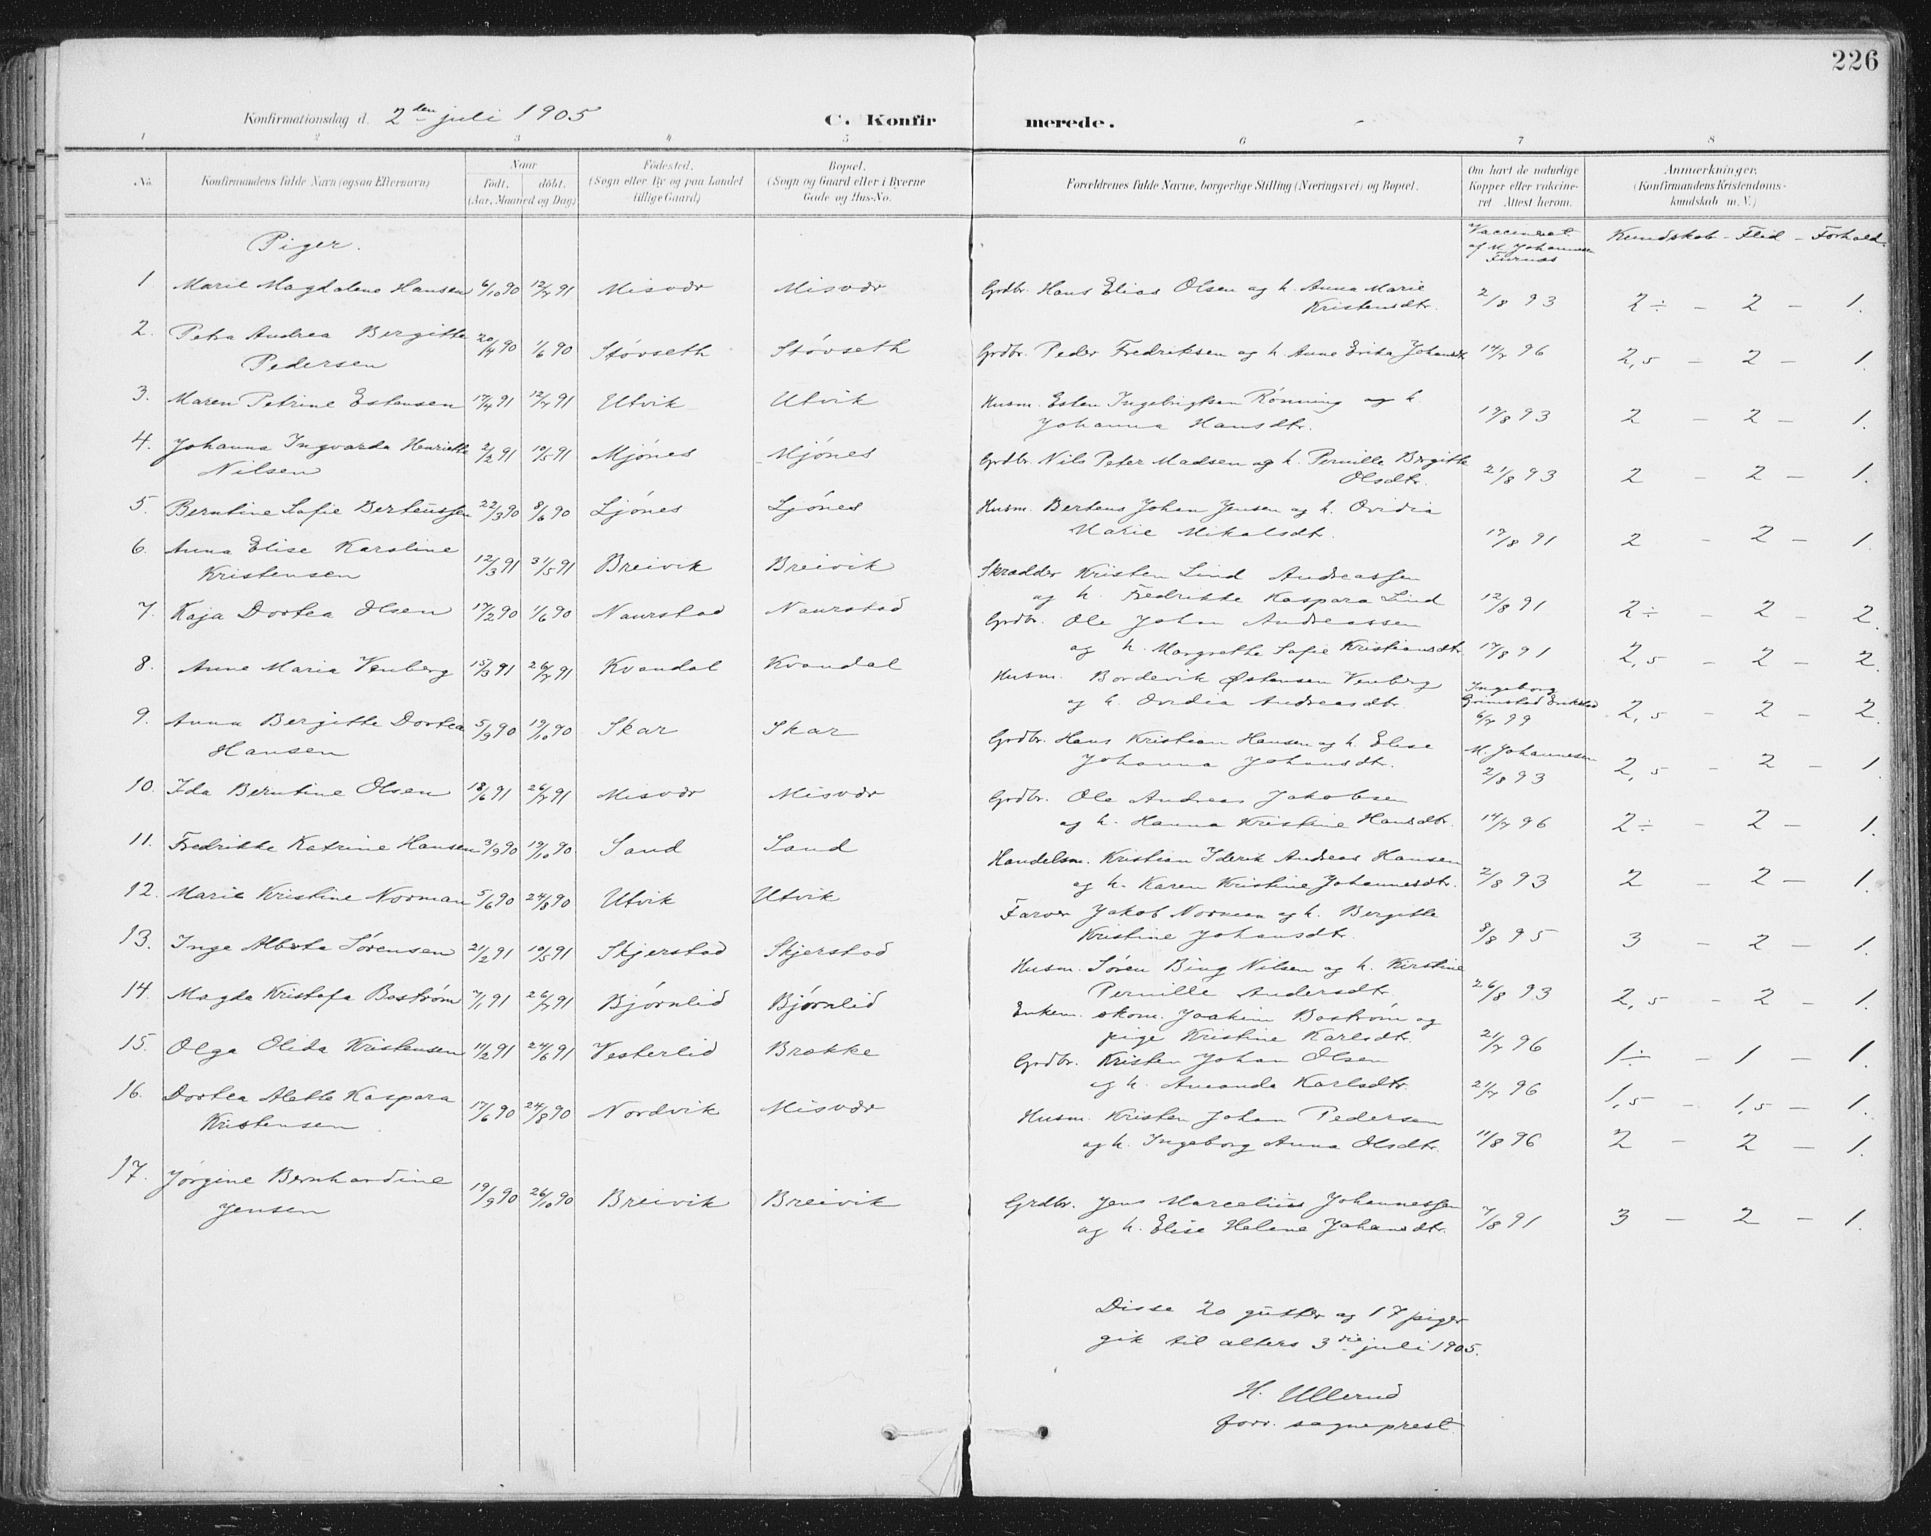 226
Konfirmationsdag d. 2den juli 1905
C. Konfirmerede.
1 2 3 4 5 6 7 8
No. Konfirmandens fulde Navn (ogsaa Efternavn) Naar Født. døbt. (Aar, Maaned og Dag) Fødested. (Sogn eller By og paa Landet tillige Gaard) Bopæl. (Sogn og Gaard eller i Byerne Gade og Hus-No. Forældrenes fulde Navne, borgerlige Stilling (Næringsvei) og Bopæl. Om havt de naturlige Kopper eller vakcineret. Attest herom. Anmerkninger. (Konfirmandens Kristendomskundskab m. V.)
Piger. Vaccineret af M. Johannesen Furnes Kundskab - Flid - Forhold.
1 Marie Magdalene Hansen 6/10 90 12/4 91 Misvær Misvær Grdbr. Hans Elias Olsen og h. Anna Marie Kristensdtr. 2/8 93 2÷ - 2 - 1.
2. Petra Andrea Bergitte Pedersen 20/4 90 1/6 90 Støvseth Støvseth Grdbr. Peder Fredriksen og h. Anne Erika Johansdt 14/7 96 2,5 - 2 - 1.
3. Maren Petrine Estensen 17/4 91 12/7 91 Utvik Utvik Husm. Esten Ingebrigtsen Rönning og h. Johanna Hansdtr. 19/8 93 2 - 2 - 1.
4. Johanna Ingvarda Henriette Nilsen 2/2 91 10/5 91 Mjónes Mjónes Grdbr. Nils Peter Madsen og h. Pernille Birgitte Olsdtr. 21/8 93 2 - 2 - 1.
5. Berntine Sofie Berteussen 22/3 90 8/6 90 Ljónes Ljónes Husm. Berteus Johan Jensen og h. Ovidia Marie Mikalsdt. 17/8 91 2 - 2 - 1.
6. Anna Elise Karoline Kristensen 12/3 91 31/5 91 Breivik Breivik Skrædder Kristen Lind Andreassen og h. Fredrikke Kaspara Lind 12/8 91 2÷ - 2 - 2.
7. Kaja Dortea Olsen 17/2 90 1/6 90 Naurstad Naurstad Grdbr. Ole Johan Andreassen og h. Margrethe Sofie Kristiansdtr. 17/8 91 2,5 - 2 - 2.
8. Anne Maria Venberg 15/3 91 26/7 91 Kvandal Kvandal Husm. Bordevik Østensen Venberg og h. Ovidia Andreasdtr. Ingeborg Grimstad 6/7 99 2,5 - 2 - 2.
9. Anna Bergitte Dortea Hansen 5/9 90 19/10 90 Skar Skar Grdbr. Hans Kristian Hansen og h. Elise Johanna Johansdtr. M. Johannesen 2/8 93 2,5 - 2 - 1.
10. Ida Berntine Olsen 18/6 91 26/7 91 Misvær Misvær Grdbr. Ole Andreas Jakobsen og h. Hanna Kristine Hansdtr. 14/7 96 2÷ - 2 - 1.
11. Fredrikke Katrine Hansen 3/9 90 19/10 90 Sand Sand Handelsm. Kristian Iderik Andreas Hansen og h. Karen Kristine Johannesdtr. 2/8 93 2 - 2 - 1.
12. Marie Kristine Norman 5/6 90 24/8 90 Utvik Utvik Farver Jakob Norman og h. Bergitte Kristine Johansdtr. 8/8 95 3 - 2 - 1.
13. Inga Alberta Sörensen 21/2 91 10/5 91 Skjerstad Skjerstad Husm. Søren Bing Nilsen og h. Kirstine Pernille Andersdtr. 26/8 93 2,5 - 2 - 1.
14. Magda Kristofa Boström 7/1 91 26/7 91 Bjørnlid Bjørnlid Enkem. skom. Joakim Boström og pige Kristine Karlsdtr. 21/7 96 1÷ - 1 - 1.
15. Olga Olida Kristensen 11/2 91 24/6 91 Vesterlid Brække Grdbr. Kristen Johan Olsen og h. Amanda Karlsdtr. 21/7 96 1,5 - 1,5 - 1.
16. Dortea Alette Kaspara Kristensen. 17/6 90 24/8 90 Nordvik Misvær Husm. Kristen Johan Pedersen og h. Ingeborg Anna Olsdtr. 11/8 96 2 - 2 - 1.
17. Jørgine Bernhardine Jensen 19/9 90 26/10 90 Breivik Breivik Grdbr. Jens Marcelius Johannessen og h. Elise Helene Johansdtr. 7/8 91 3 - 2 - 1.
Disse 20 gutter og 17 piger
gik til alters 3die juli 1905.
H. Ullerud
forr. sogneprest